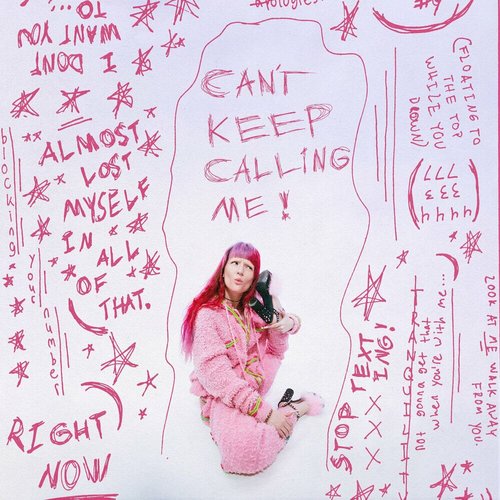 apologies.
TO...
WANT YOU
I DONT
ALMOST
LOST
MYSELF
IN ALL
OF THAT.
blocking
your
number
RIGHT
NOW
CAN'T
KEEP
CALLING
ME!
(FLOATING TO
THE TOP
WHILE YOU
DROWN)
444
333
777
STOP TEXT
ING!
XXX
not gonna get that
when you're with me...
LOOK AT ME WALK AWAY
FROM YOU.